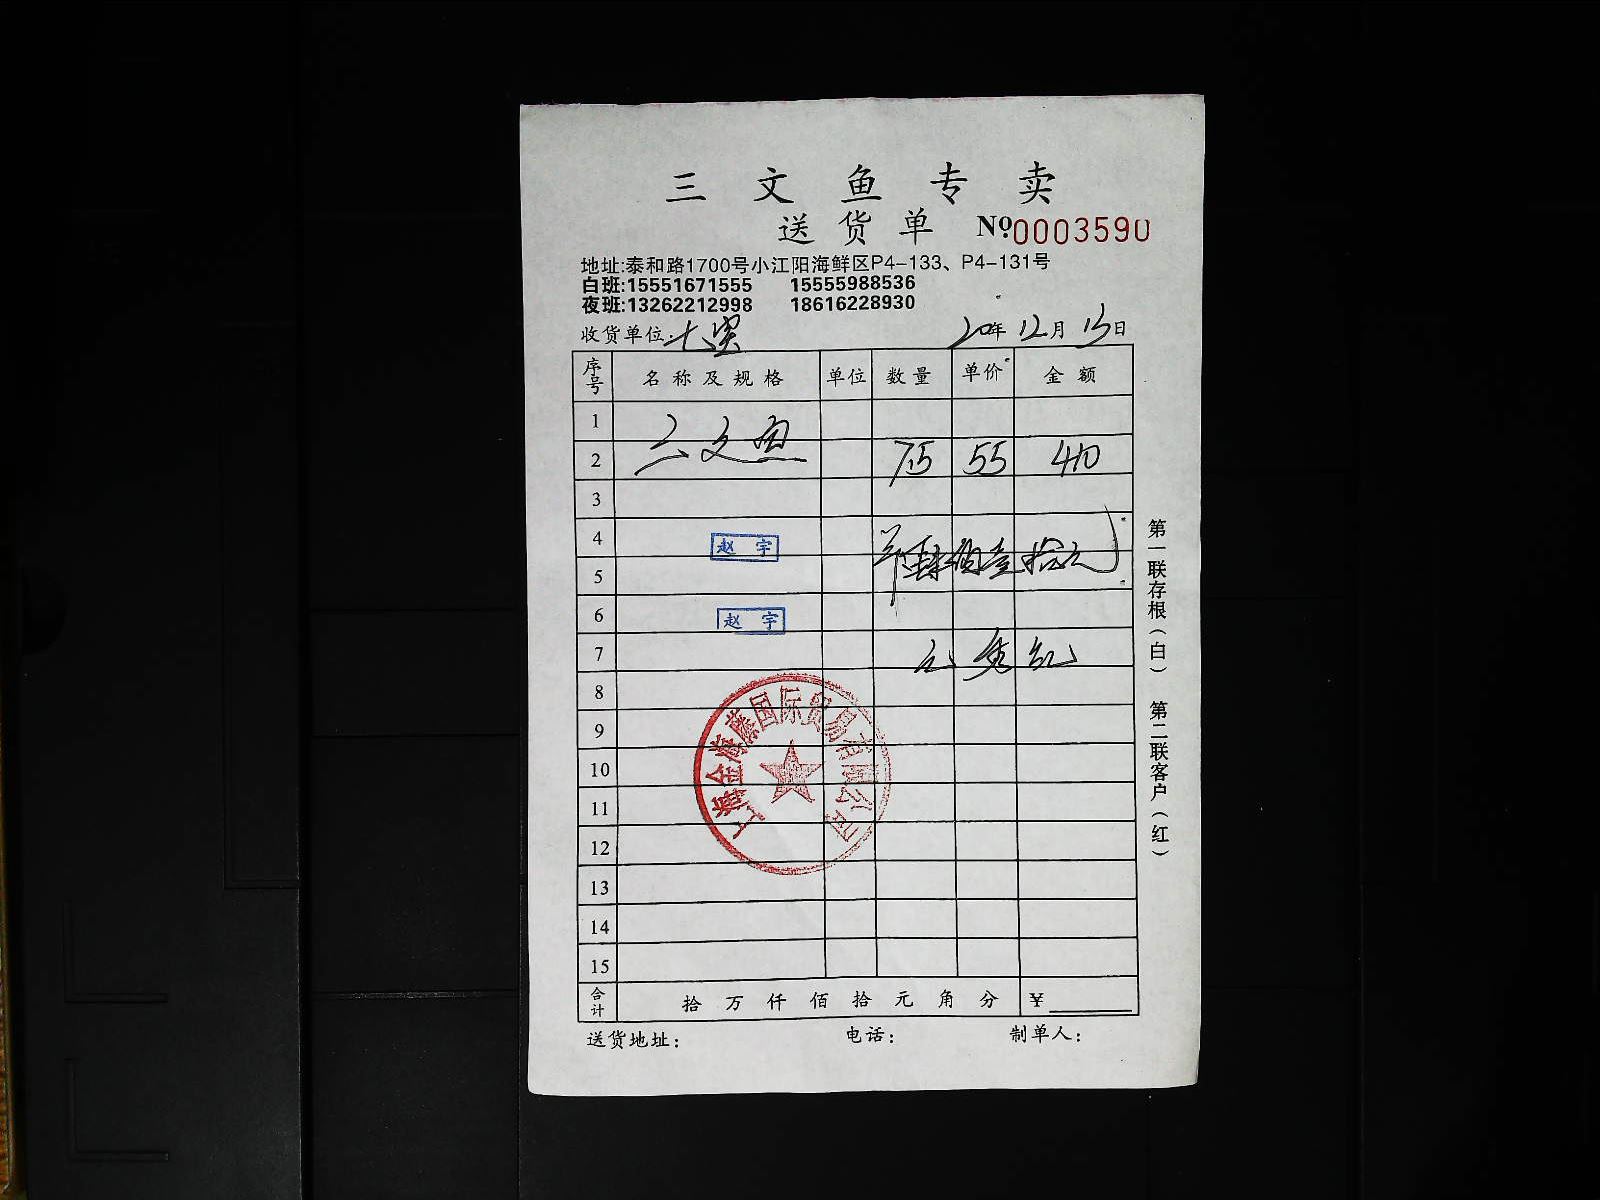 三文鱼专卖
送货单 №0003590
地址:泰和路1700号小江阳海鲜区P4-133、P4-131号
白班:15551671555 15555988536
夜班:13262212998 18616228930
收货单位: 20年12月13日
序号 名称及规格 单位 数量 单价 金额
1
三文鱼
2 7.5 55 410
3
4 赵宇
肆佰壹拾元
5
6 赵宇
7
8
9
10
11
12
13
14
15
上海金海藤国际贸易有限公司
合计 拾万仟佰拾元角分 ¥
送货地址: 电话: 制单人:
第一联存根(白) 第二联客户(红)